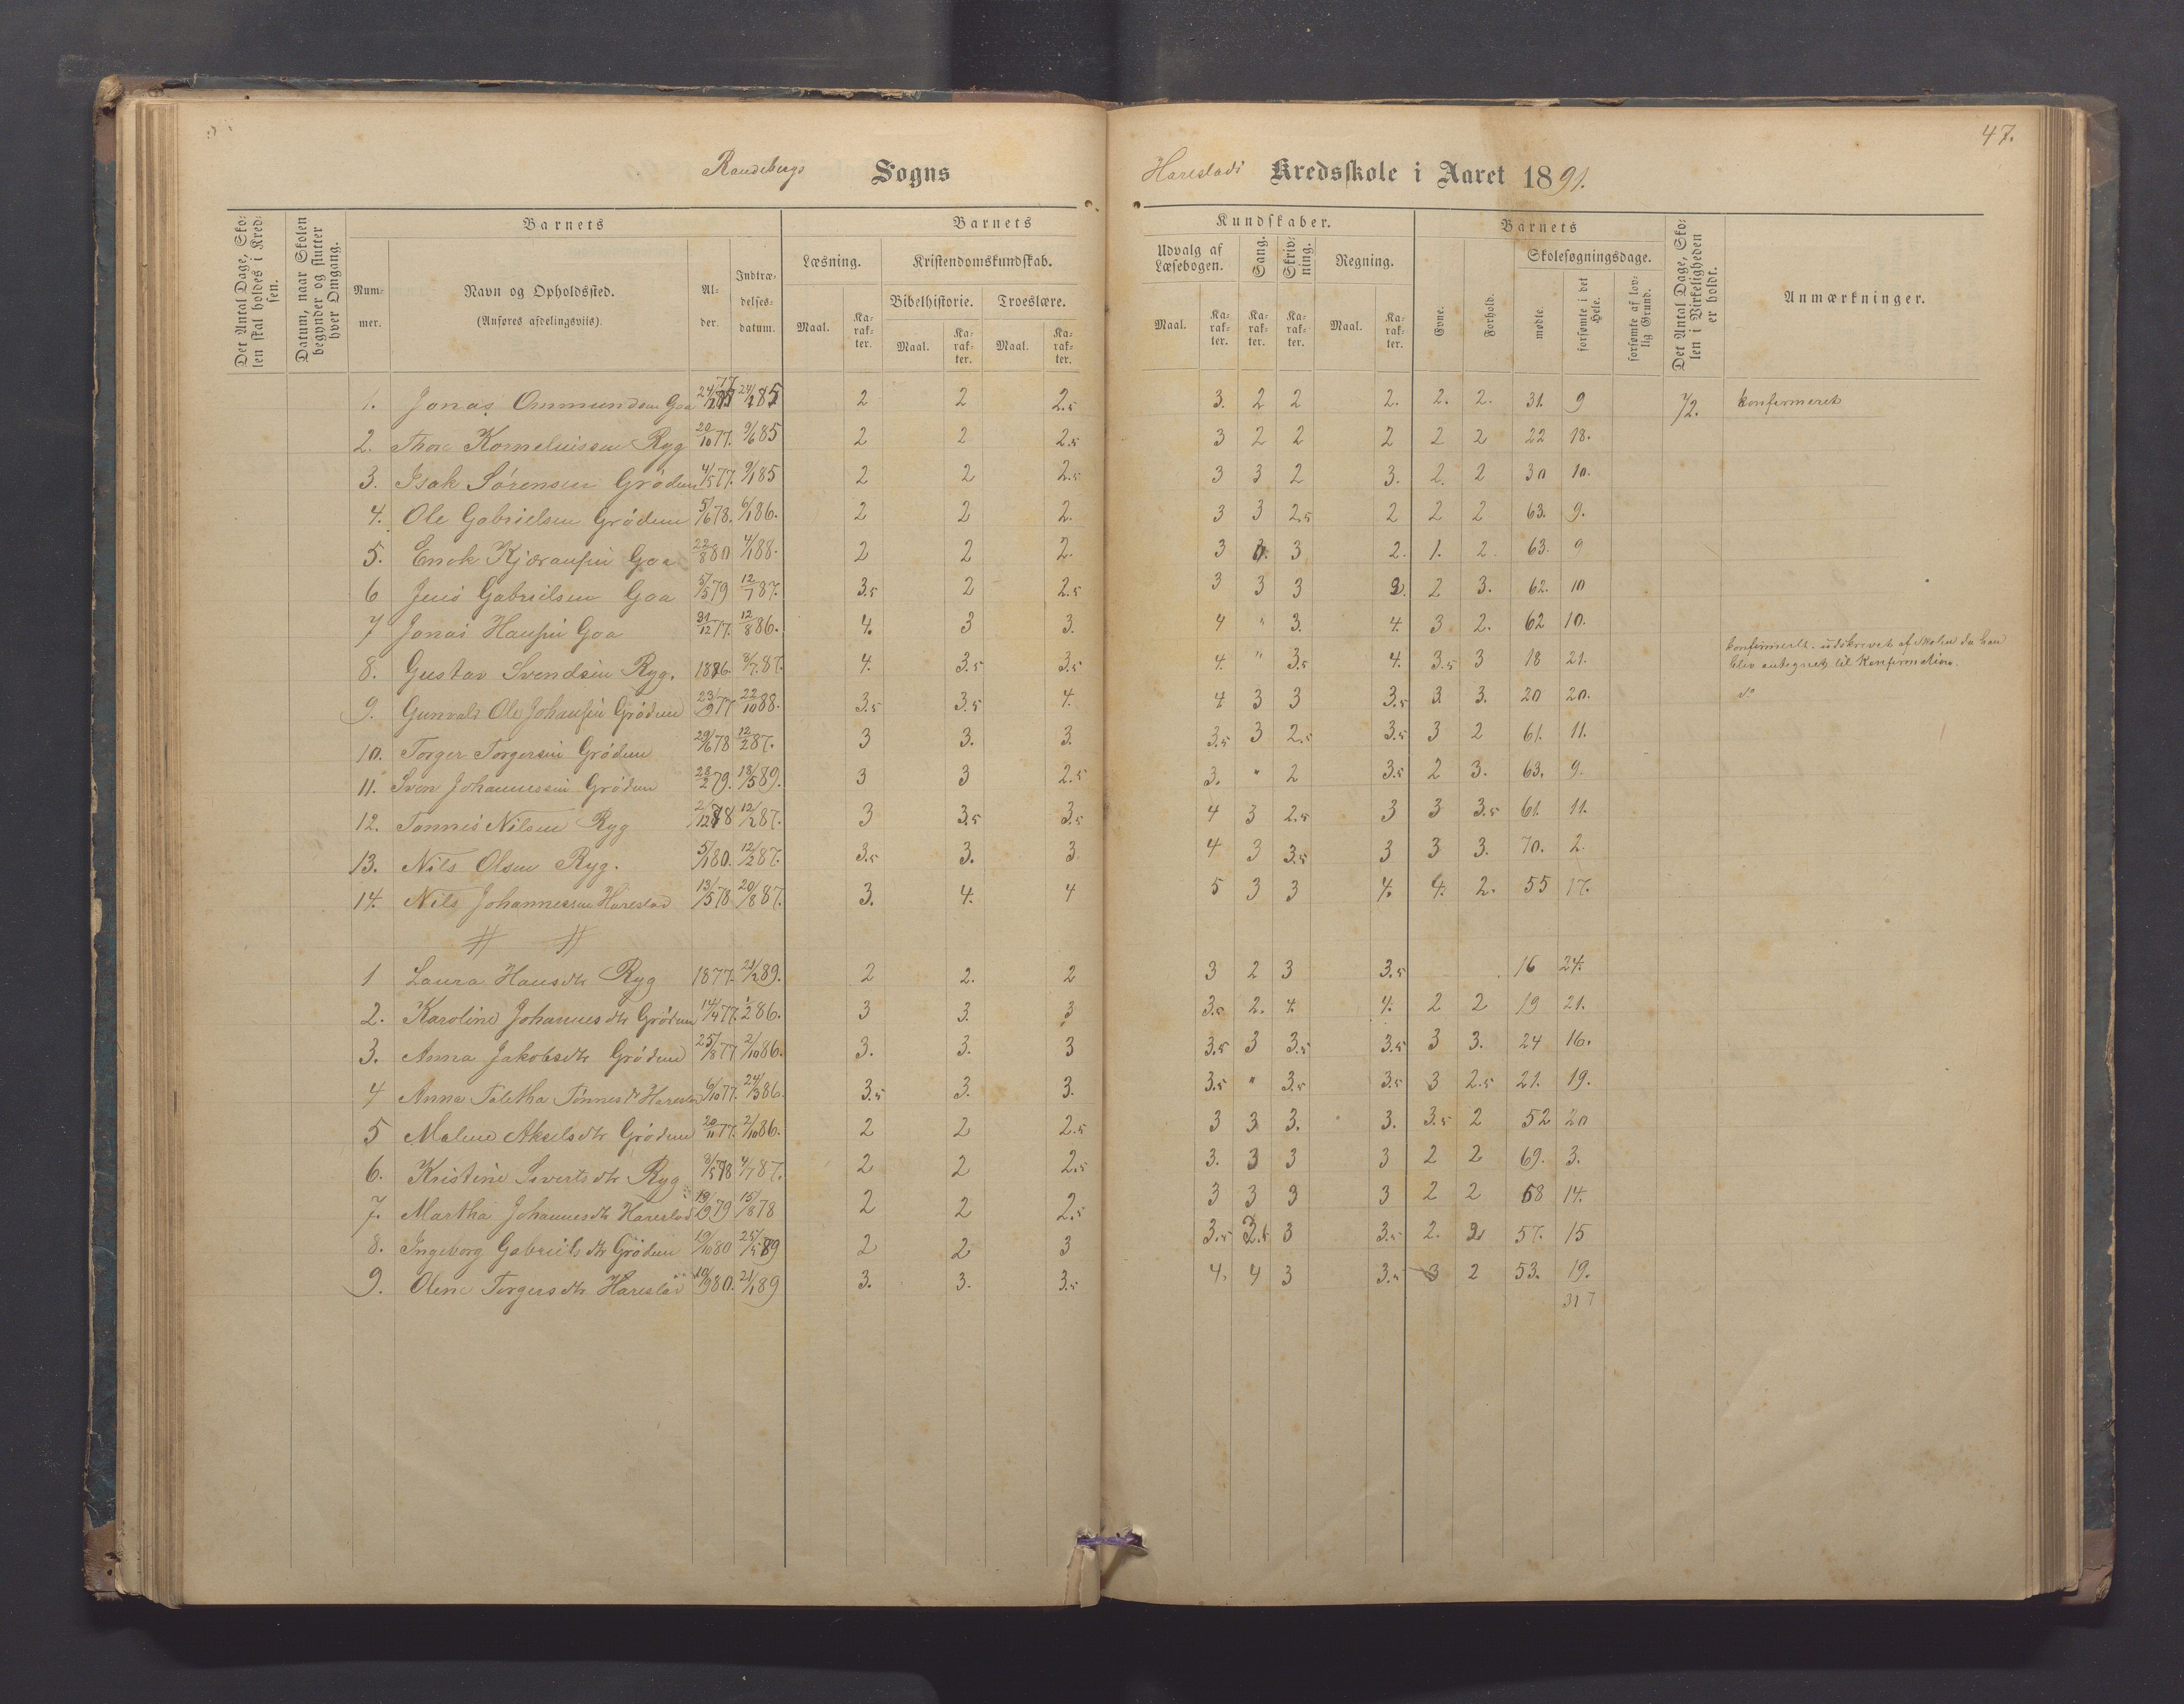 47.
Randebergs Sogns Harestads Kredsskole i Aaret 1891.
Det Antal Dage, Skolen skal holdes i Kredsen.
Datum, naar Skolen begynder og slutter hver Omgang.
Barnets
Nummer.
Navn og Opholdssted.
(Anføres afdelingsviis).
Alder.
Indtrædelsesdatum.
Barnets Kundskaber.
Læsning.
Maal.
Karakter.
Kristendomskundskab.
Bibelhistorie.
Maal.
Karakter.
Troeslære.
Maal.
Karakter.
Udvalg af Læsebogen.
Maal.
Karakter.
Sang.
Karakter.
Skrivning.
Karakter.
Regning.
Maal.
Karakter.
Barnets
Evne.
Forhold.
Skolesøgningsdage.
mødte.
forsømte i det Hele.
forsømte af lovlig Grund.
Det Antal Dage, Skolen i Virkeligheden er holdt.
Anmærkninger.
1. Jonas Ommundsen Goa 2 2 2.5 3. 2 2 2. 2. 2. 31. 9 72. konfirmeret
2. Thore Korneliussen Ryg 20/10 77. 9/6 85 2 2 2.5 3 2 2 2 2 2 22 18.
3. Isak Sørensen Grødem 4/5 77. 9/1 85 2 2 2.5 3 3 2 3. 2. 2 30 10.
4. Ole Gabrielsen Grødem 5/6 78. 6/1 86. 2 2 2. 3 3 2.5 2 2 2 63. 9.
5. Enok Goa 22/8 80 4/1 88. 2 2 2. 3 3 2. 1. 2. 63. 9
6 Jens Gabrielsen Goa 5/5 79 12/7 87. 3.5 2 2.5 3 3 3 2. 2 3. 62. 10
7 Jonas Hansen Goa 31/12 77. 12/8 86. 4. 3 3. 4 " 3. 4. 3 2. 62 10.
8. Gustav Svendsen Ryg. 1876. 3/7 87. 4. 3.5 3.5 4. " 3.5 4. 3.5 3 18 21. konfirmeret. udskrevet af Skolen da han blev antegnet til Konfirmation.
9. Gunvald Ole Johansen Grødem 23/9 77 22/10 88. 3.5 3.5 4. 4 3 3 3.5 3. 3. 20 20. do
10. Torger Torgersen Grødem 29/6 78 12/2 87. 3 3. 3. 3.5 3 2.5 3.5 3 2 61. 11.
11. Sven Johannessen Grødem 28/2 79. 18/5 89. 3 3 2.5 3. " 2 3.5 2 3. 63. 9.
12. Tønnes Nilsen Ryg 2/12 78 12/2 87. 3 3.5 3.5 4 3 2.5 3 3 3.5 61. 11.
13. Nils Olsen Ryg. 5/1 80. 12/2 87. 3.5 3. 3. 4 3 3.5 3 3 3. 70. 2.
14. Nils Johannessen Harestad 13/5 78 20/8 87. 3. 4. 4 5 3 3 4. 4. 2. 55 17.
1 Laura Hansdtr Ryg 1877. 21/2 89. 2 2. 2 3 2 3 3.5 16 24.
2. Karoline Johannesdtr Grødem 14/4 77. 1/2 86. 3 3. 3 3.5 2. 4. 4. 2 2 19 21.
3. Anna Jakobsdtr Grødem 25/8 77 2/10 86. 3. 3. 3 3.5 3 3.5 3.5 3 3. 24 16.
4 Anna Taletha Tønnesdr Harestad 6/10 77. 24/3 86. 3.5 3. 3. 3.5 " 3.5 3.5 3 2.5 21. 19.
5 Malene Akselsdtr Grødem 20/11 77. 2/10 86. 2 2 2.5 3 3 3. 3. 3.5 2 52 20
6. Kristine Sivertsdtr Ryg 3/5 78 4/7 87. 2 2 2.5 3. 3 3 3 2 2 69. 3.
7. Martha Johannesdtr Harestad 19/9 79 15/8 78 2 2 2.5 3 3 3 3 2 2 58 14.
8. Ingeborg Gabrielsdtr Grødem 19/10 80 25/5 89 2 2 3 3.5 2.5 3 3.5 2. 2 57. 15
9. Olene Torgersdtr Harestad 19/9 80. 21/1 89 3. 3. 3.5 4. 4 3 3.5 3 2 53. 19.
317